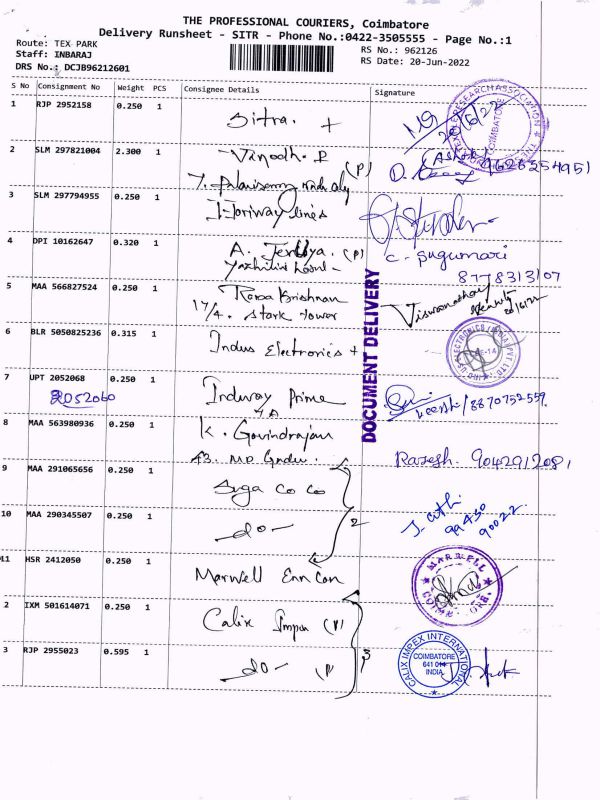 THE PROFESSIONAL COURIERS, Coimbatore
Delivery Runsheet - SITR - Phone No.:0422-3505555 - Page No.:1
Route: TEX PARK
Staff: INBARAJ
DRS No.: DCJB96212601
RS No.: 962126
RS Date: 20-Jun-2022
S No Consignment No Weight PCS Consignee Details Signature
1 RJP 2952158 0.250 1 Sitra. +
20/6/22
2 SLM 297821004 2.300 1 Vinodh. P (P)
(Ashok) 9626554951
3 SLM 297794955 0.250 1
4 DPI 10162647 0.320 1 A. (P)
C. Sugumari
8778313107
5 MAA 566827524 0.250 1 Rama Krishnan
17/4. Stark tower
Viswanathan
20/6/22
DOCUMENT DELIVERY
6 BLR 5050825236 0.315 1 Indus Electronics +
7 UPT 2052068 0.250 1 Indway Prime
2052060
8870752559
8 MAA 563980936 0.250 1 K. Govindrajan
43.
Rajesh. 9042912081
9 MAA 291065656 0.250 1 Co Co
10 MAA 290345507 0.250 1 -do- 2
99430
90022
11 HSR 2412050 0.250 1 Marwell Enn Con
MARWELL
2 IXM 501614071 0.250 1 Calix Impex (P)
3 RJP 2955023 0.595 1 -do- (P) 3
CALIX IMPEX INTERNATIONAL
COIMBATORE
641 014
INDIA